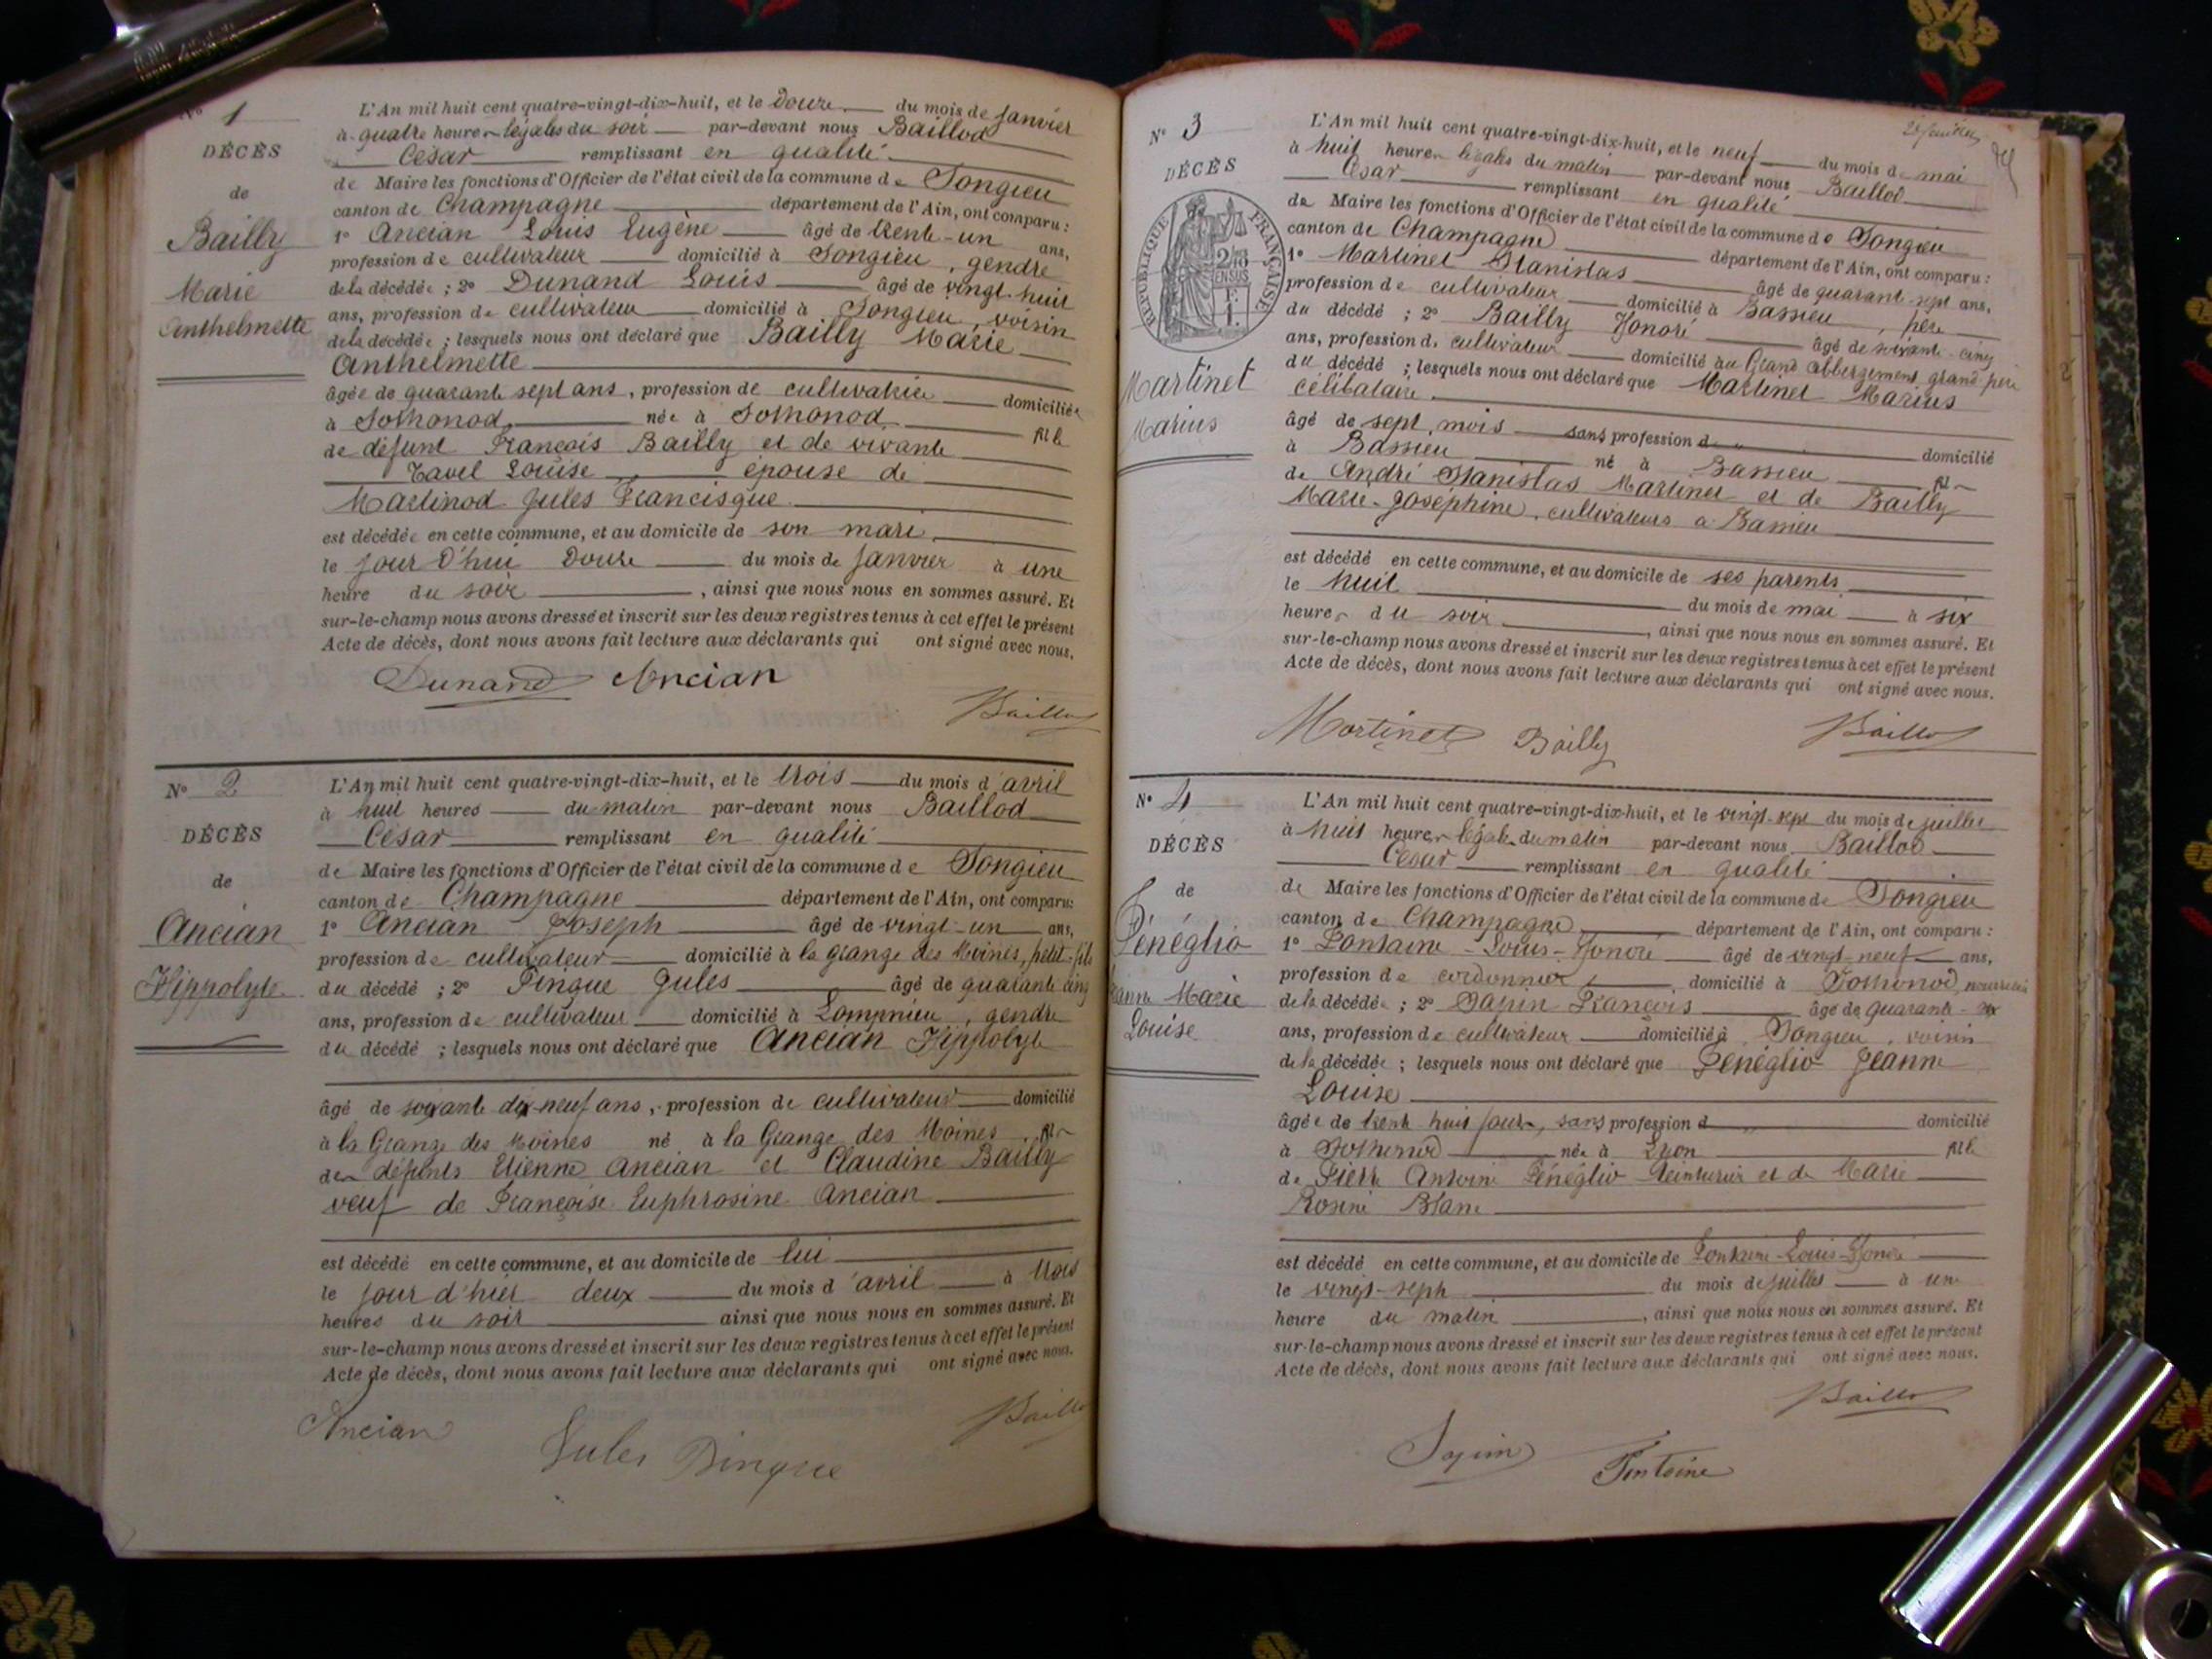 N° 1
DÉCÈS
de
Bailly
Marie
Anthelmette
L'An mil huit cent quatre-vingt-dix-huit, et le Douze du mois de Janvier
à quatre heures légales du soir par-devant nous Baillod
César remplissant en qualité
de Maire les fonctions d'Officier de l'état civil de la commune de Songieu
canton de Champagne département de l'Ain, ont comparu :
1° Ancian Louis Eugène âgé de trente-un ans,
profession de cultivateur domicilié à Songieu, gendre
de la décédée ; 2° Dunand Louis âgé de vingt-huit
ans, profession de cultivateur domicilié à Songieu, voisin
de la décédée ; lesquels nous ont déclaré que Bailly Marie
Anthelmette
âgée de quarante sept ans, profession de cultivatrice domiciliée
à Sothonod née à Sothonod fille
de défunt François Bailly et de vivante
Tavel Louise épouse de
Martinod Jules Francisque
est décédée en cette commune, et au domicile de son mari
le jour d'hui Douze du mois de Janvier à une
heure du soir, ainsi que nous nous en sommes assuré. Et
sur-le-champ nous avons dressé et inscrit sur les deux registres tenus à cet effet le présent
Acte de décès, dont nous avons fait lecture aux déclarants qui ont signé avec nous.
Dunand Ancian
Baillod
N° 2
DÉCÈS
de
Ancian
Hippolyte
L'An mil huit cent quatre-vingt-dix-huit, et le trois du mois d'avril
à huit heures du matin par-devant nous Baillod
César remplissant en qualité
de Maire les fonctions d'Officier de l'état civil de la commune de Songieu
canton de Champagne département de l'Ain, ont comparu :
1° Ancian Joseph âgé de vingt-un ans,
profession de cultivateur domicilié à la Grange des Moines, petit-fils
du décédé ; 2° Pingue Jules âgé de quarante cinq
ans, profession de cultivateur domicilié à Lompnieu, gendre
du décédé ; lesquels nous ont déclaré que Ancian Hippolyte
âgé de soixante dix-neuf ans, profession de cultivateur domicilié
à la Grange des Moines né à la Grange des Moines, fils
des défunts Etienne Ancian et Claudine Bailly
veuf de Françoise Euphrosine Ancian
est décédé en cette commune, et au domicile de lui
le jour d'hier deux du mois d'avril à trois
heures du soir ainsi que nous nous en sommes assuré. Et
sur-le-champ nous avons dressé et inscrit sur les deux registres tenus à cet effet le présent
Acte de décès, dont nous avons fait lecture aux déclarants qui ont signé avec nous.
Ancian Jules Pingue
Baillod
N° 3
DÉCÈS
RÉPUBLIQUE FRANÇAISE
Martinet
Marius
L'An mil huit cent quatre-vingt-dix-huit, et le neuf du mois de mai
à huit heures légales du matin par-devant nous Baillod
César remplissant en qualité
de Maire les fonctions d'Officier de l'état civil de la commune de Songieu
canton de Champagne département de l'Ain, ont comparu :
1° Martinet Stanislas âgé de quarante-sept ans,
profession de cultivateur domicilié à Bassieu, père
du décédé ; 2° Bailly Honoré âgé de soixante-cinq
ans, profession de cultivateur domicilié au Grand Abbergement, grand père
du décédé ; lesquels nous ont déclaré que Martinet Marius
célibataire
âgé de sept mois sans profession d domicilié
à Bassieu né à Bassieu fils
de André Stanislas Martinet et de Bailly
Marie-Joséphine, cultivateurs à Bassieu
est décédé en cette commune, et au domicile de ses parents
le huit du mois de mai à six
heures du soir, ainsi que nous nous en sommes assuré. Et
sur-le-champ nous avons dressé et inscrit sur les deux registres tenus à cet effet le présent
Acte de décès, dont nous avons fait lecture aux déclarants qui ont signé avec nous.
Martinet Bailly Baillod
N° 4
DÉCÈS
de
Pénéglio
Jeanne Marie
Louise
L'An mil huit cent quatre-vingt-dix-huit, et le vingt-sept du mois de juillet
à huit heures légales du matin par-devant nous Baillod
César remplissant en qualité
de Maire les fonctions d'Officier de l'état civil de la commune de Songieu
canton de Champagne département de l'Ain, ont comparu :
1° Fontaine-Louis-Honoré âgé de vingt-neuf ans,
profession de cordonnier, domicilié à Sothonod, nourricier
de la décédée ; 2° François âgé de quarante-six
ans, profession de cultivateur domicilié à Songieu, voisin
de la décédée ; lesquels nous ont déclaré que Pénéglio Jeanne
Louise
âgée de trente huit jours, sans profession d domicilié
à Sothonod née à Lyon fille
de Pierre Antoine Pénéglio teinturier et de Marie
Rosine Blanc
est décédé en cette commune, et au domicile de Fontaine-Louis-Honoré
le vingt-sept du mois de juillet à une
heure du matin, ainsi que nous nous en sommes assuré. Et
sur-le-champ nous avons dressé et inscrit sur les deux registres tenus à cet effet le présent
Acte de décès, dont nous avons fait lecture aux déclarants qui ont signé avec nous.
Baillod
Fontaine